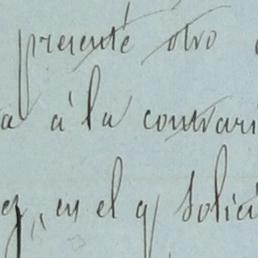 presente otro
a á la contrari
ez, en el q solici